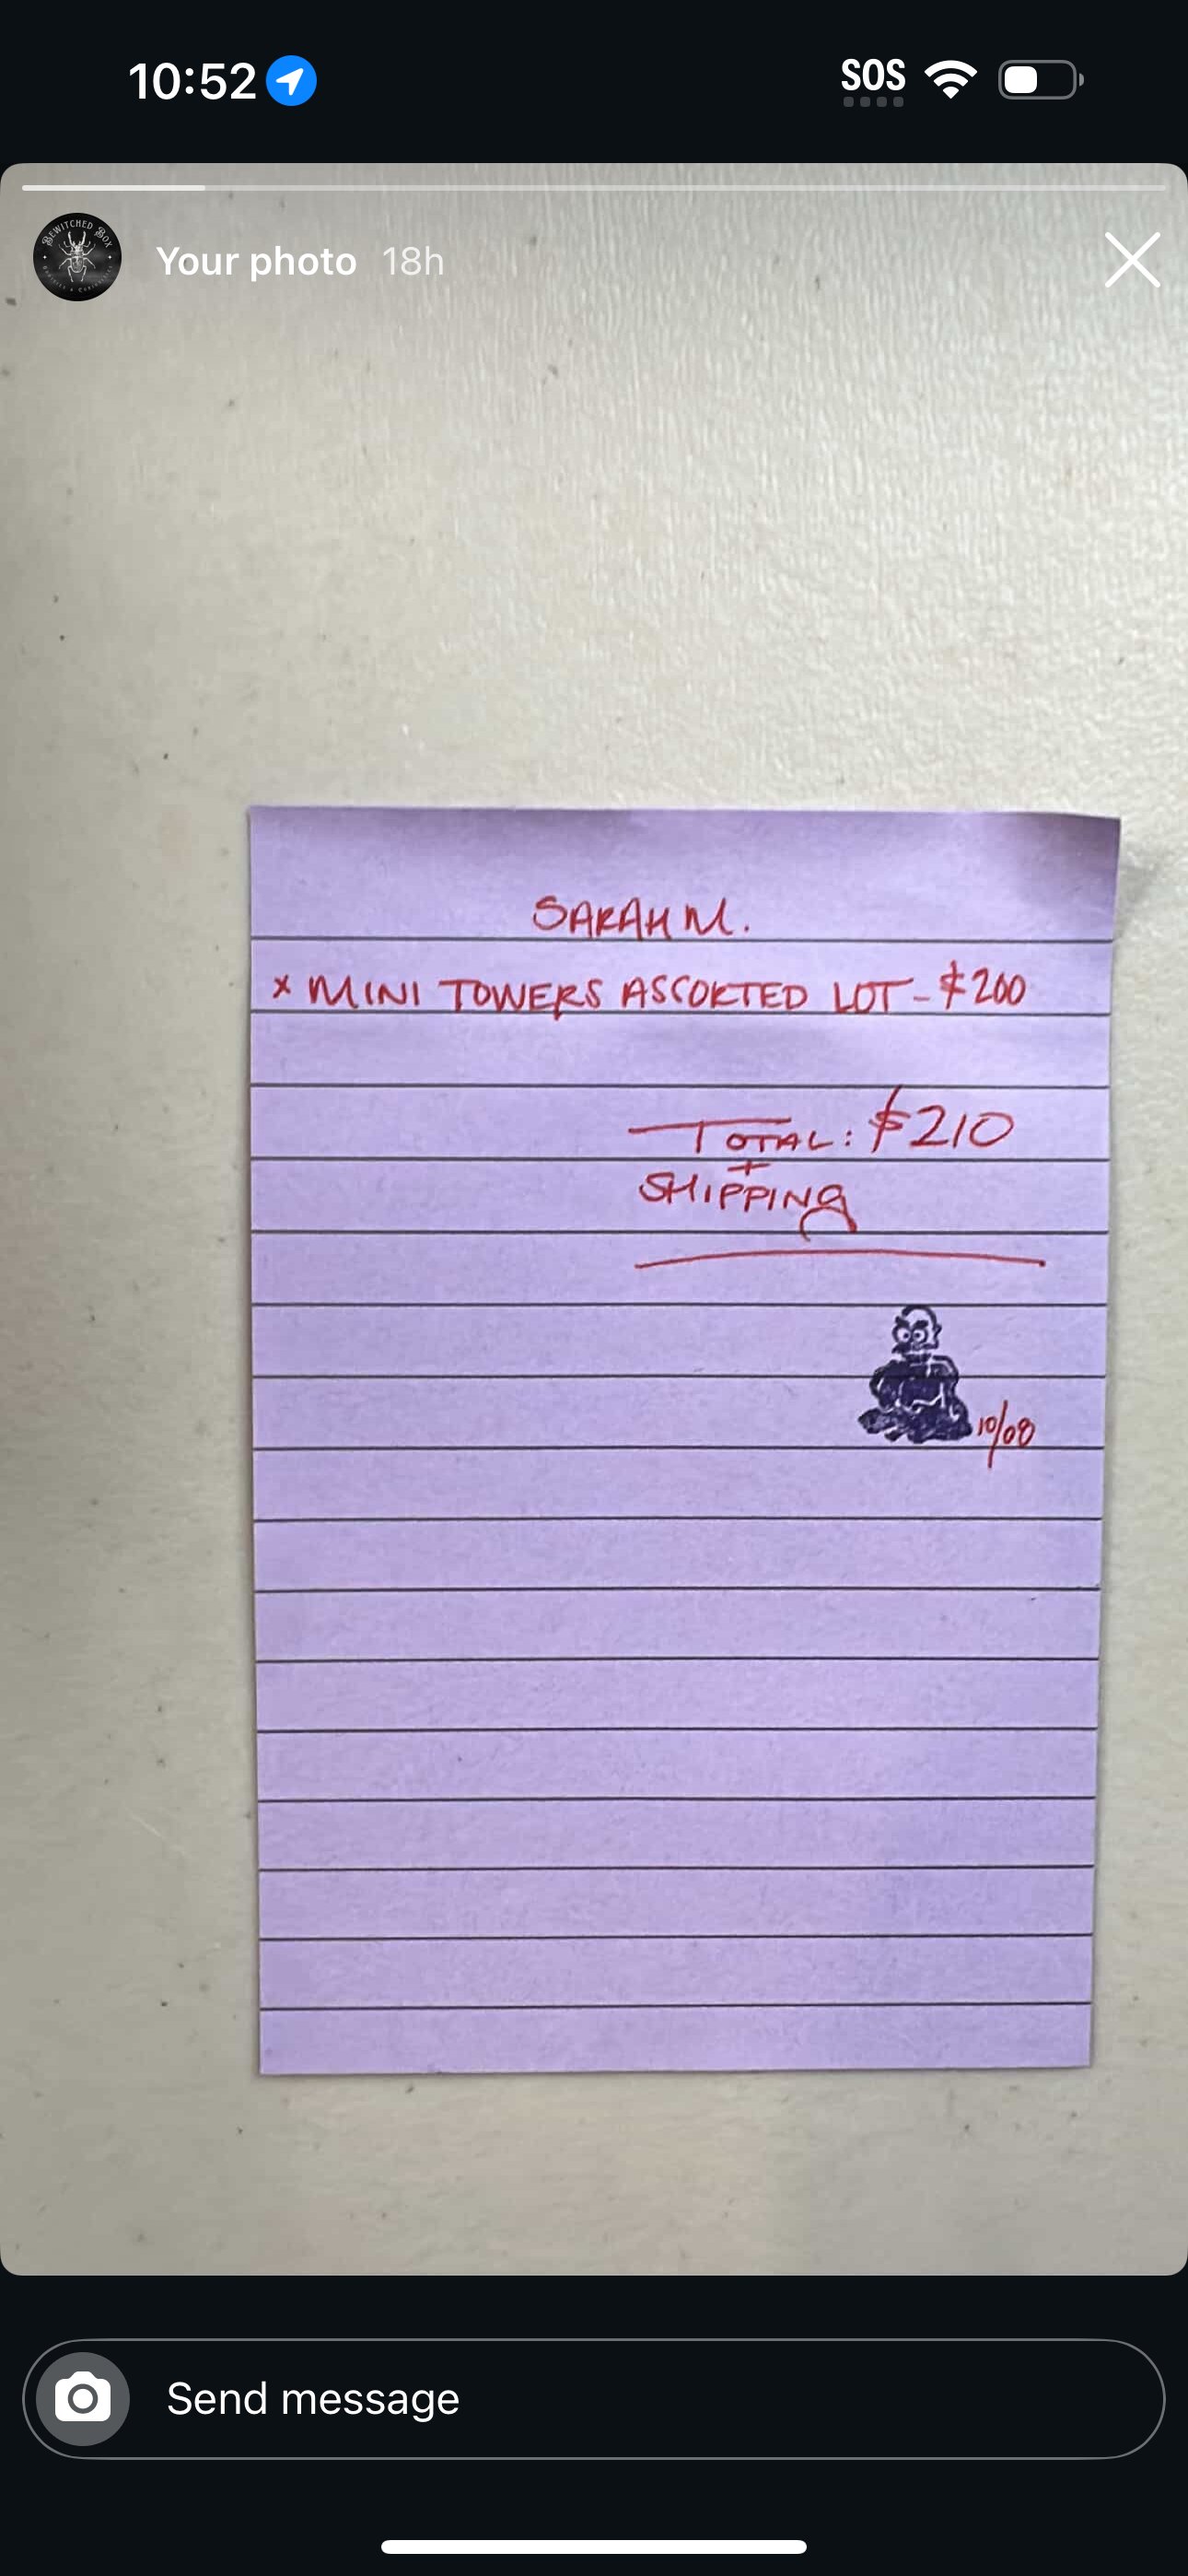 10:52
SOS
BEWITCHED BOX
Your photo 18h
SARAH M.
x MINI TOWERS ASSORTED LOT - $200
TOTAL: $210
+
SHIPPING
10/08
Send message